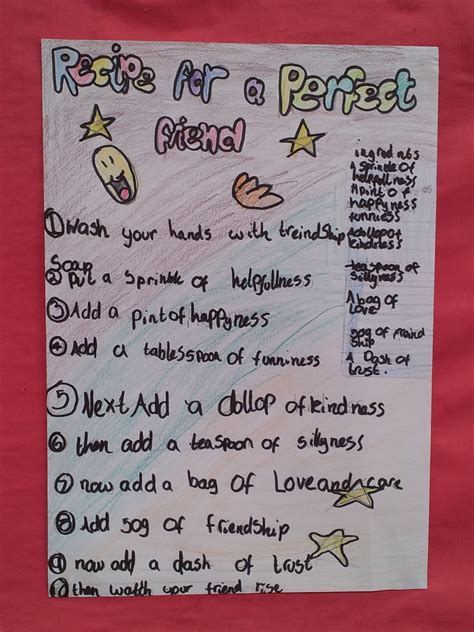 Recipe for a Perfect
friend
① Wash your hands with freindship
Soap
② Put a Sprinkle of helpfullness
③ Add a pint of happyness
④ Add a tablesspoon of funniness
⑤ Next Add a dollop of kindness
⑥ then add a teaspoon of sillyness
⑦ now add a bag of Love and care
⑧ Add 50g of friendship
⑨ now add a dash of trust
then watch your friend rise
ingredints
A Sprincle Of
helpfullness
A pint O f
happyness
funniess
a dollop of
kindness
teaspoon of
sillyness
A bag of
Love
50g of freind
ship
A Dash of
trust.